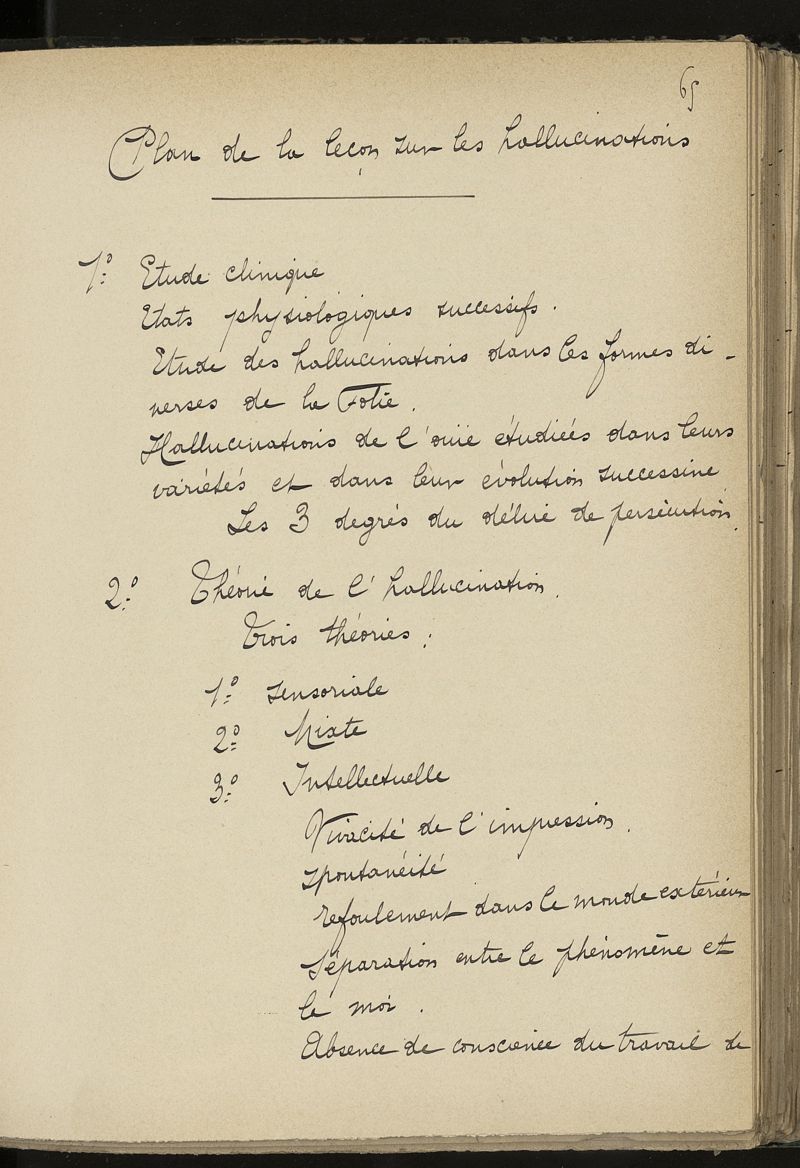 65
Plan de la leçon sur les hallucinations
1º Etude clinique
Etats physiologiques successifs.
Etude des hallucinations dans les formes di-
verses de la Folie.
Hallucinations de l'ouïe étudiées dans leurs
variétés et dans leur évolution successive
Les 3 degrés du délire de persécution.
2º Théorie de l'hallucination.
Trois théories :
1º sensoriale
2º Mixte
3º Intellectuelle
Vivacité de l'impression.
spontanéité
refoulement dans le monde extérieur
Séparation entre le phénomène et
le moi.
Absence de conscience du travail de